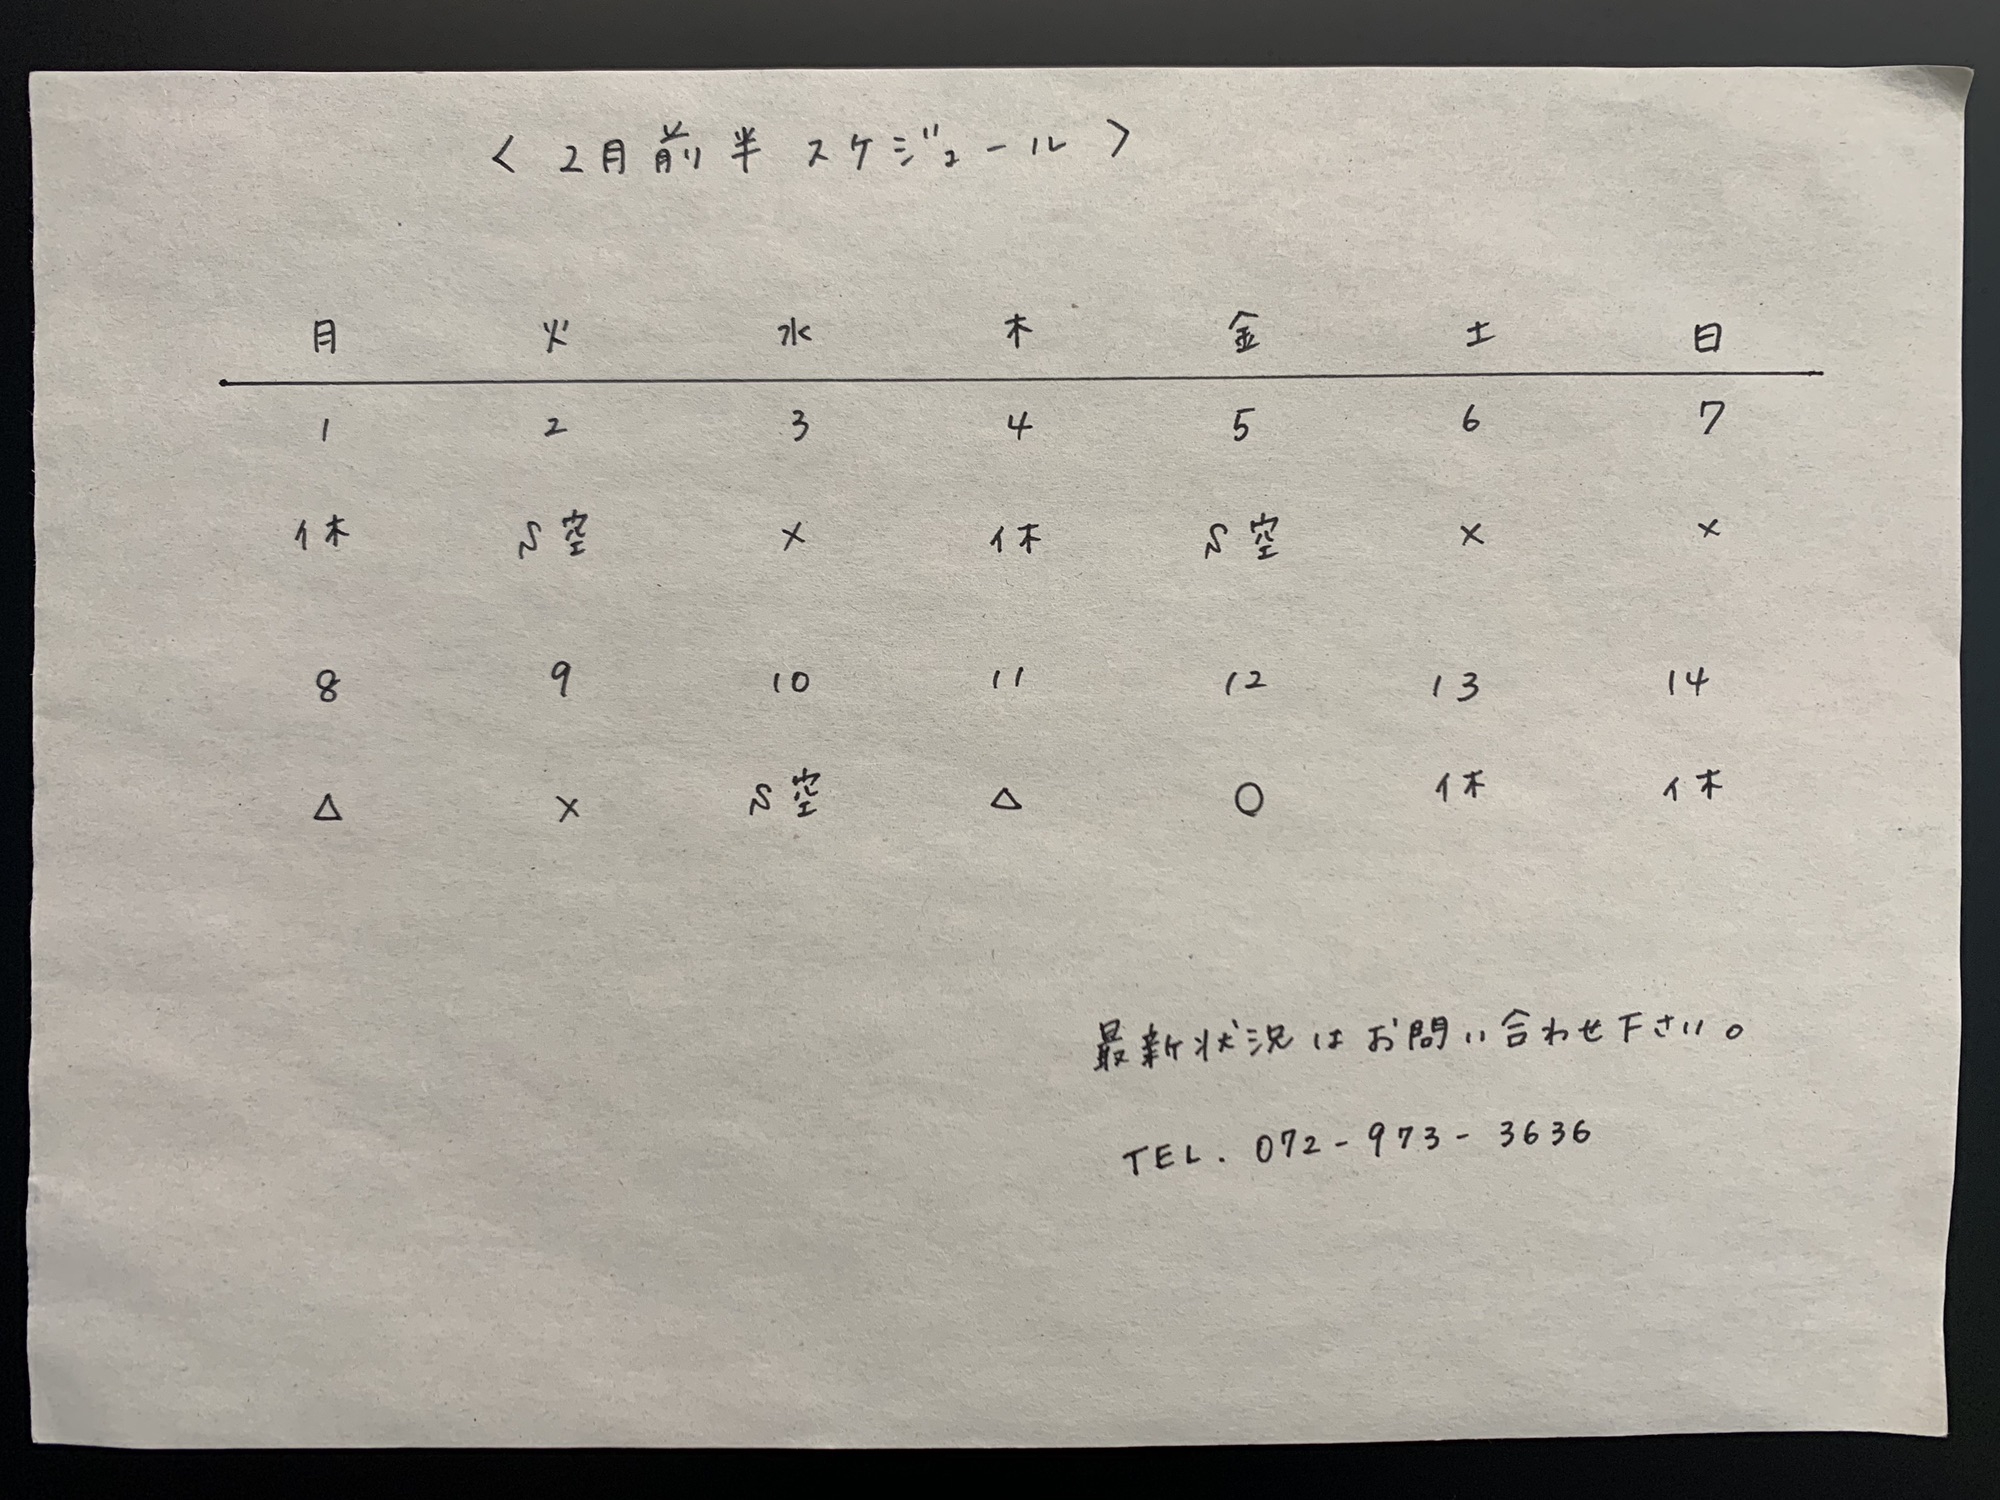 〈 2月前半 スケジュール 〉
月 火 水 木 金 土 日
1 2 3 4 5 6 7
休 S空 × 休 S空 × ×
8 9 10 11 12 13 14
△ × S空 △ ○ 休 休
最新状況はお問い合わせ下さい。
TEL. 072-973-3636